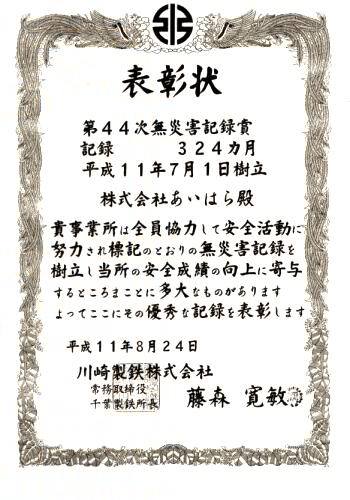 表彰状
第44次無災害記録賞
記録 324カ月
平成11年7月1日樹立
株式会社あいはら殿
貴事業所は全員協力して安全活動に
努力され標記のとおりの無災害記録を
樹立し当所の安全成績の向上に寄与
するところまことに多大なものがあります
よってここにその優秀な記録を表彰します
平成11年8月24日
川崎製鉄株式会社
常務取締役
千葉製鉄所長 藤森 寛敏